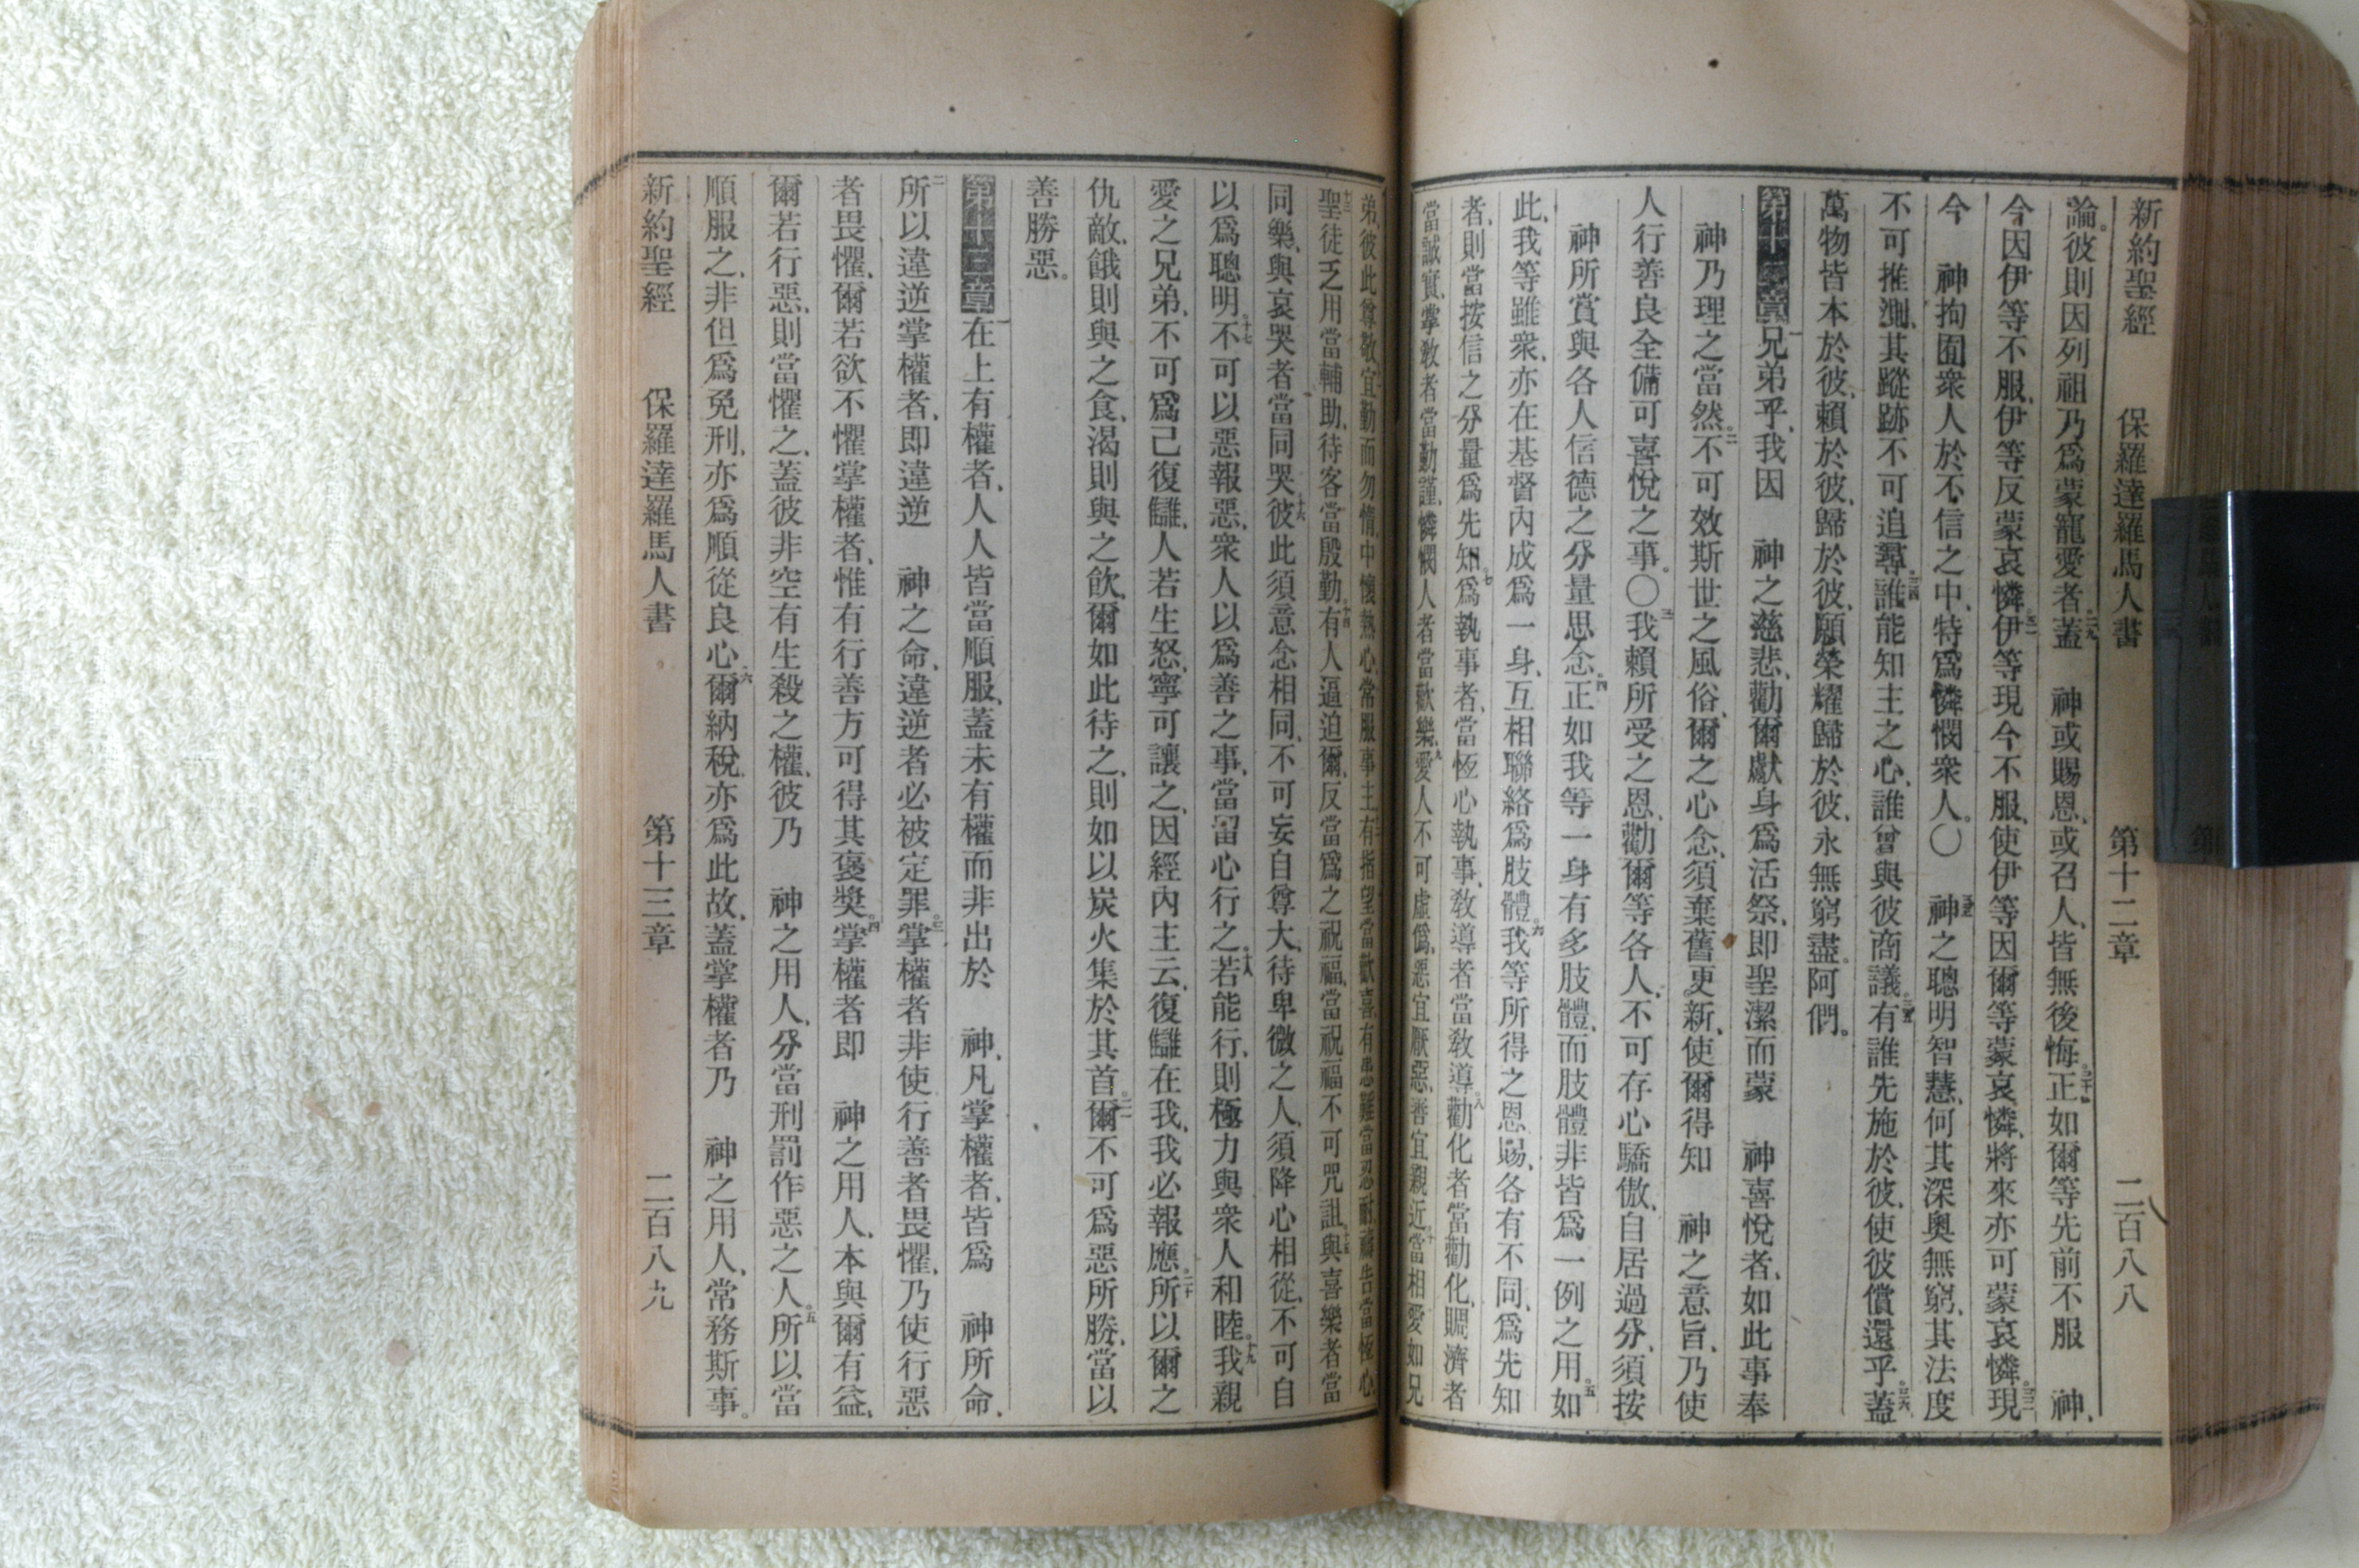 新約聖經　保羅達羅馬人書　第十二章　二百八八
論。彼則因列祖乃爲蒙寵愛者。二九蓋　神或賜恩、或召人、皆無後悔。三十正如爾等先前不服　神、
今因伊等不服、伊等反蒙哀憐。三一伊等現今不服、使伊等因爾等蒙哀憐、將來亦可蒙哀憐。三二現
今　神拘囿衆人於不信之中、特爲憐憫衆人。〇三三　神之聰明智慧、何其深奧無窮、其法度
不可推測、其蹤跡不可追尋。三四誰能知主之心、誰曾與彼商議。三五有誰先施於彼、使彼償還乎。三六蓋
萬物皆本於彼、賴於彼、歸於彼、願榮耀歸於彼、永無窮盡。阿們。
第十二章一兄弟乎、我因　神之慈悲、勸爾獻身爲活祭、即聖潔而蒙　神喜悅者、如此事奉
神乃理之當然。二不可效斯世之風俗、爾之心念、須棄舊更新、使爾得知　神之意旨、乃使
人行善良全備可喜悅之事。〇三我賴所受之恩、勸爾等各人、不可存心驕傲、自居過分、須按
神所賞與各人信德之分量思念。四正如我等一身有多肢體、而肢體非皆爲一例之用。五如
此、我等雖衆、亦在基督內成爲一身、互相聯絡爲肢體。六我等所得之恩賜、各有不同、爲先知
者、則當按信之分量爲先知。七爲執事者、當恆心執事、敎導者當敎導。八勸化者當勸化、賙濟者
當誠實、掌敎者當勤謹、憐憫人者當歡樂。九愛人不可虛僞、惡宜厭惡、善宜親近。十當相愛如兄
弟、彼此尊敬、宜勤而勿惰、中懷熱心、常服事主、有指望當歡喜、有患難當忍耐、禱告當恆心、
十三聖徒乏用當輔助、待客當殷勤。十四有人逼迫爾、反當爲之祝福、當祝福不可咒詛。十五與喜樂者當
同樂、與哀哭者當同哭。十六彼此須意念相同、不可妄自尊大、待卑微之人、須降心相從、不可自
以爲聰明。十七不可以惡報惡、衆人以爲善之事、當留心行之。十八若能行、則極力與衆人和睦。十九我親
愛之兄弟、不可爲己復讎、人若生怒、寧可讓之、因經內主云、復讎在我、我必報應。二十所以爾之
仇敵、餓則與之食、渴則與之飲、爾如此待之、則如以炭火集於其首。二一爾不可爲惡所勝、當以
善勝惡。
第十三章一在上有權者、人人皆當順服、蓋未有權而非出於　神、凡掌權者、皆爲　神所命、
二所以違逆掌權者、即違逆　神之命、違逆者必被定罪。三掌權者非使行善者畏懼、乃使行惡
者畏懼、爾若欲不懼掌權者、惟有行善方可得其褒獎。四掌權者即　神之用人、本與爾有益、
爾若行惡、則當懼之、蓋彼非空有生殺之權、彼乃　神之用人、分當刑罰作惡之人。五所以當
順服之、非但爲免刑、亦爲順從良心。六爾納稅、亦爲此故、蓋掌權者乃　神之用人、常務斯事。
新約聖經　保羅達羅馬人書　第十三章　二百八九